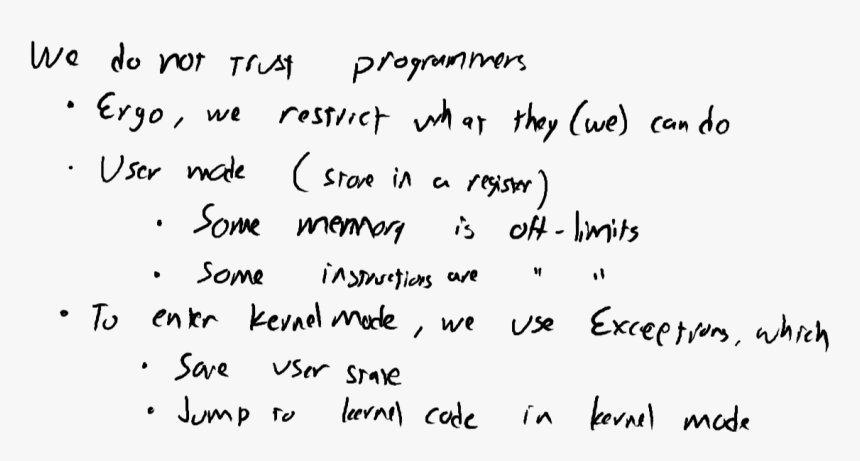 We do not trust programmers
• Ergo, we restrict what they (we) can do
• User mode (store in a register)
• Some memory is off-limits
• Some instructions are " "
• To enter kernel mode, we use Exceptions, which
• Save user state
• Jump to kernel code in kernel mode